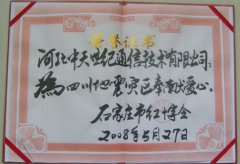 荣誉证书
河北中天世纪通信技术有限公司:
为四川地震灾区奉献爱心。
石家庄市红十字会
2008年5月27日